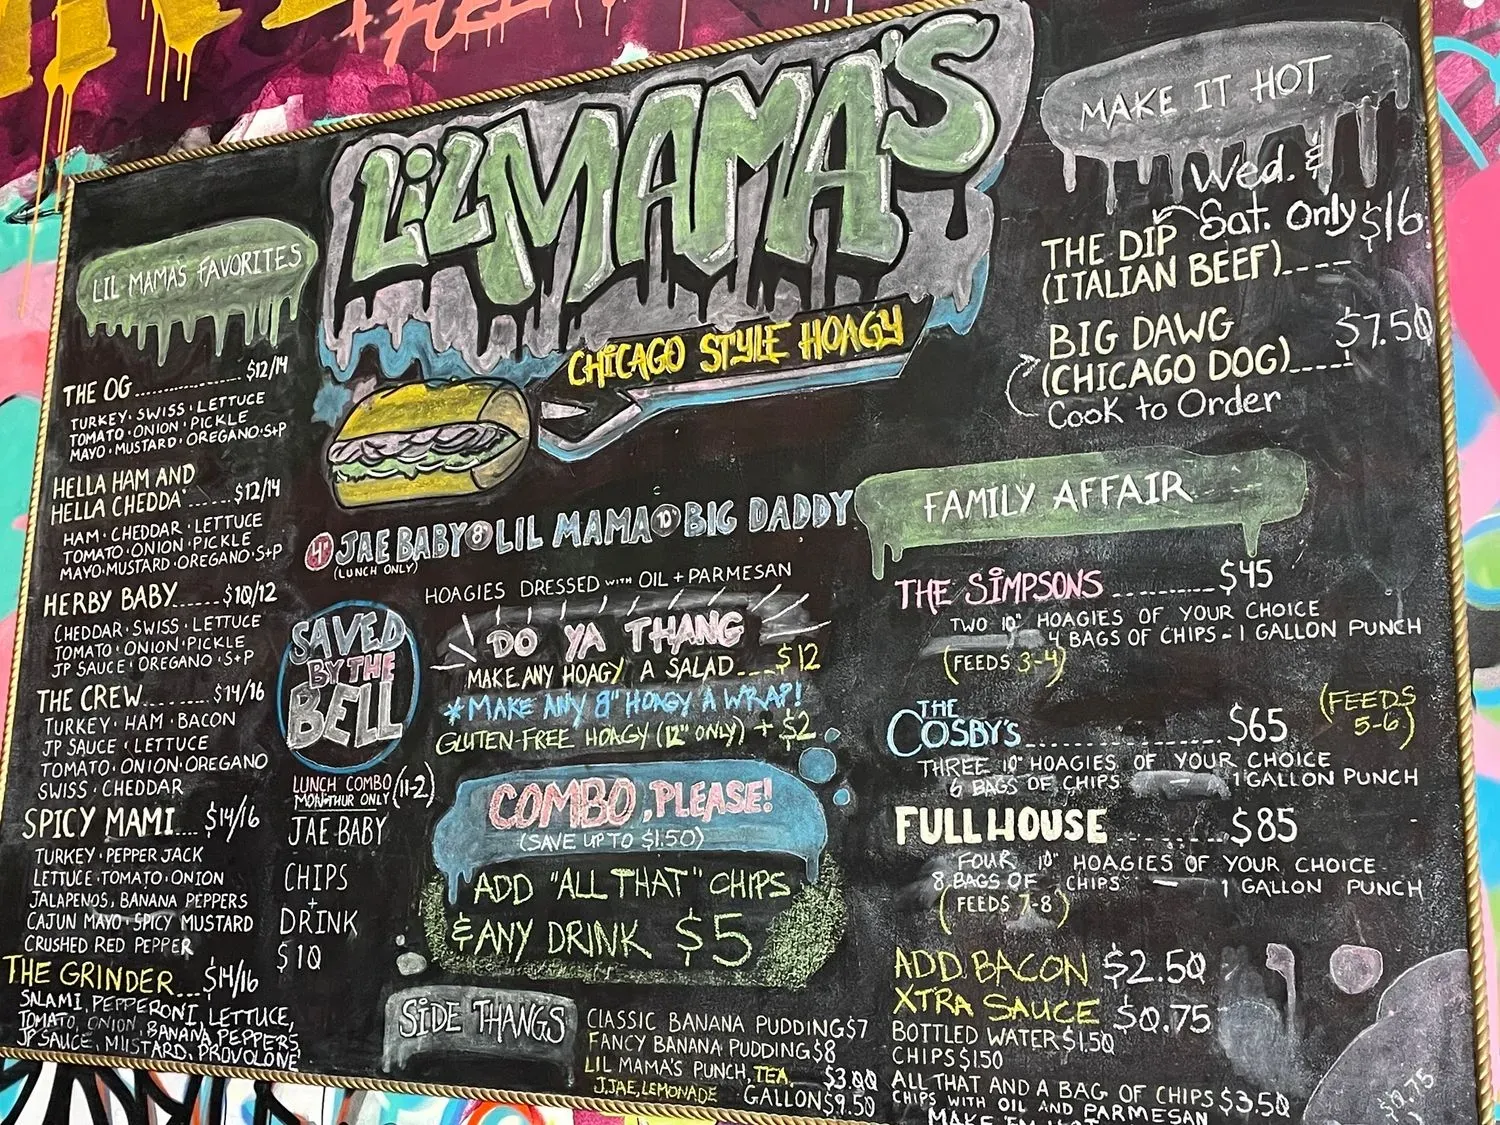 LIL MAMA'S
CHICAGO STYLE HOAGY
LIL MAMA'S FAVORITES
THE OG ............... $12/14
TURKEY · SWISS · LETTUCE
TOMATO · ONION · PICKLE
MAYO · MUSTARD · OREGANO · S+P
HELLA HAM AND
HELLA CHEDDA' ...... $12/14
HAM · CHEDDAR · LETTUCE
TOMATO · ONION · PICKLE
MAYO · MUSTARD · OREGANO · S+P
HERBY BABY ...... $10/12
CHEDDAR · SWISS · LETTUCE
TOMATO · ONION · PICKLE
JP SAUCE · OREGANO · S+P
THE CREW ........ $14/16
TURKEY · HAM · BACON
JP SAUCE · LETTUCE
TOMATO · ONION · OREGANO
SWISS · CHEDDAR
SPICY MAMI .... $14/16
TURKEY · PEPPER JACK
LETTUCE · TOMATO · ONION
JALAPENOS, BANANA PEPPERS
CAJUN MAYO · SPICY MUSTARD
CRUSHED RED PEPPER
THE GRINDER ... $14/16
SALAMI, PEPPERONI, LETTUCE,
TOMATO, ONION, BANANA PEPPERS
JP SAUCE, MUSTARD, PROVOLONE
4" JAE BABY 8" LIL MAMA 10" BIG DADDY
(LUNCH ONLY)
HOAGIES DRESSED WITH OIL + PARMESAN
SAVED
BY THE
BELL
LUNCH COMBO (11-2)
MON-THUR ONLY
JAE BABY
CHIPS
+
DRINK
$10
DO YA THANG
MAKE ANY HOAGY A SALAD ... $12
* MAKE ANY 8" HOAGY A WRAP!
GLUTEN-FREE HOAGY (12" ONLY) + $2
COMBO, PLEASE!
(SAVE UP TO $1.50)
ADD "ALL THAT" CHIPS
& ANY DRINK $5
SIDE THANGS
CLASSIC BANANA PUDDING $7
FANCY BANANA PUDDING $8
LIL MAMA'S PUNCH, TEA, $3.00
J.JAE, LEMONADE GALLON $9.50
MAKE IT HOT
Wed. &
Sat. Only
THE DIP $16
(ITALIAN BEEF) ....
BIG DAWG $7.50
(CHICAGO DOG) ....
Cook to Order
FAMILY AFFAIR
THE SIMPSONS ......... $45
TWO 10" HOAGIES OF YOUR CHOICE
4 BAGS OF CHIPS - 1 GALLON PUNCH
(FEEDS 3-4)
THE
COSBY'S ................ $65 (FEEDS 5-6)
THREE 10" HOAGIES OF YOUR CHOICE
6 BAGS OF CHIPS 1 GALLON PUNCH
FULL HOUSE ......... $85
FOUR 10" HOAGIES OF YOUR CHOICE
8 BAGS OF CHIPS - 1 GALLON PUNCH
(FEEDS 7-8)
ADD BACON $2.50
XTRA SAUCE $0.75
BOTTLED WATER $1.50
CHIPS $1.50
ALL THAT AND A BAG OF CHIPS $3.50
CHIPS WITH OIL AND PARMESAN
MAKE 'EM HOT